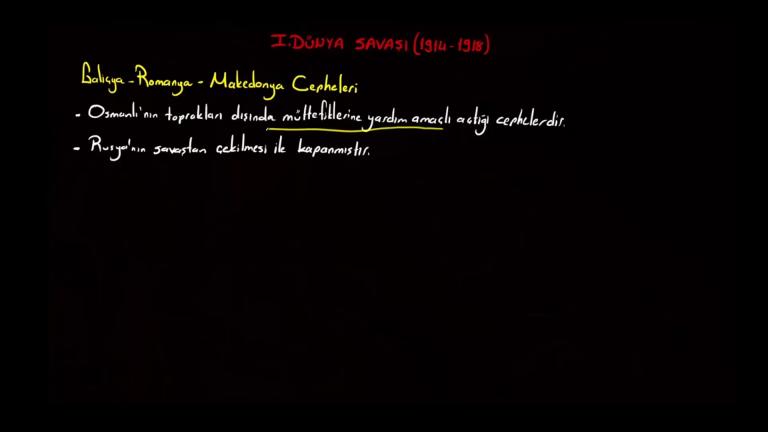 I. DÜNYA SAVAŞI (1914-1918)
Galiçya - Romanya - Makedonya Cepheleri
- Osmanlı'nın toprakları dışında müttefiklerine yardım amaçlı açtığı cephelerdir.
- Rusya'nın savaştan çekilmesi ile kapanmıştır.